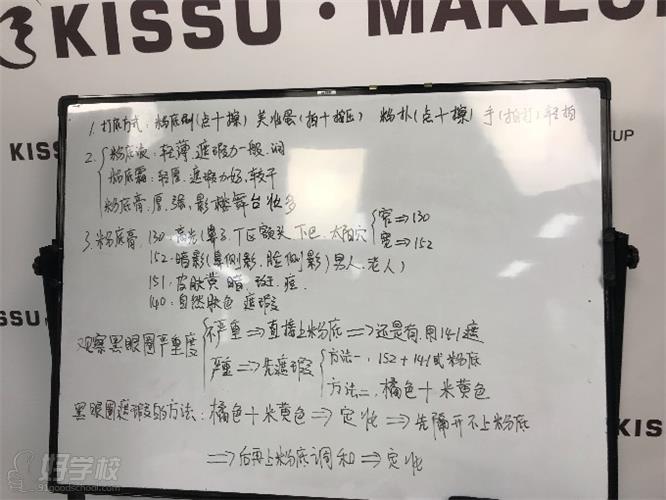 KISSU · MAKEUP
1. 打底方式：粉底刷(点十擦) 美妆蛋(拍十按压) 粉扑(点十擦) 手(拍打)轻拍
2. 粉底液：轻薄.遮瑕力一般.润
粉底霜：轻厚.遮瑕力好.较干
粉底膏：厚.强.影楼舞台妆多
3.粉底膏：130.高光(鼻子.丁区额头.下巴.太阳穴 窄⇒130
宽⇒152
152.暗影(鼻侧影.脸侧影)男人.老人)
151.皮肤黄.暗.斑.痘.
140.自然肤色 遮瑕
观察黑眼圈严重度 不严重⇒直接上粉底⇒还是有.用141遮
严重⇒先遮瑕 方法一. 152+141或粉底
方法二. 橘色十米黄色
黑眼圈遮瑕的方法：橘色十米黄色⇒定妆⇒先隔开不上粉底
⇒后再上粉底调和⇒定妆
KISSU
KISSU
UP
KISSU
好学校
91goodschool.com